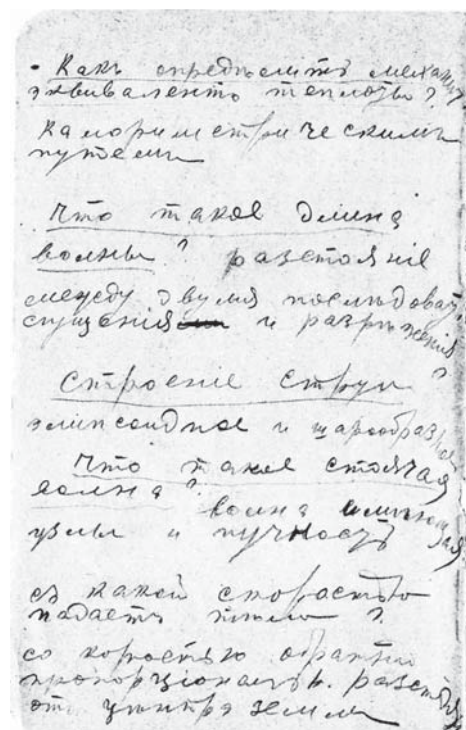 Какъ опредѣлить механич
эквивалентъ теплоты?
Калориметрическимъ
путемъ
Что такое длина
волны? разстоянiе
между двумя послѣдоват
сгущенiя и разрѣженiя
Строенiе струи?
элипсоидное и шарообразное
Что такое стоячая
волна? волна имѣющая
узлы и пучность
съ какой скоростью
падаетъ тѣло?
со коростью обратно
пропорцiональн. разстоян
отъ центра земли